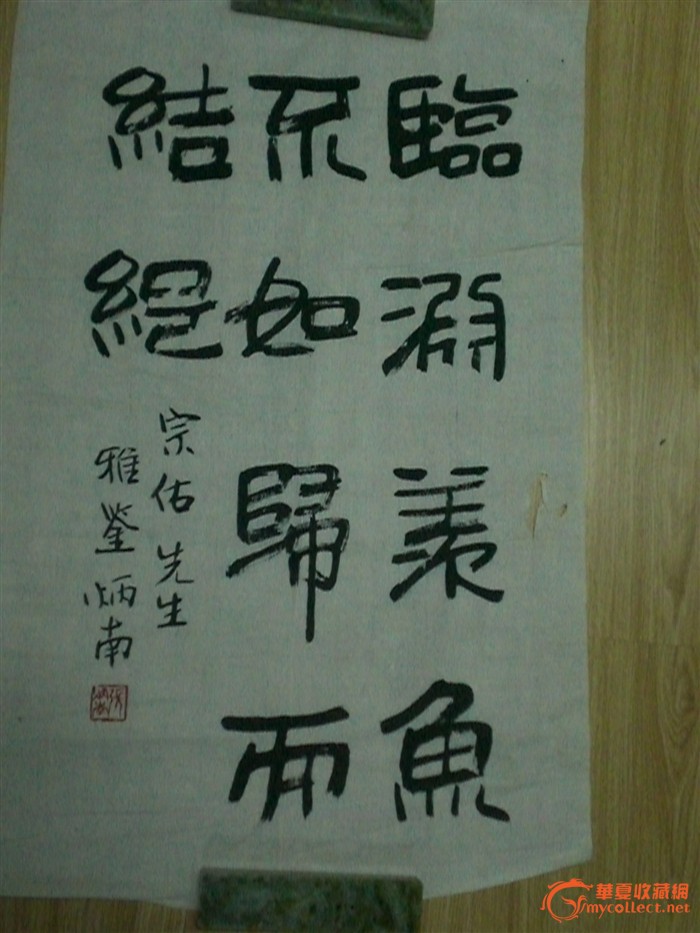 臨淵羨魚
不如歸而
結網
宗佑先生
雅鉴炳南
華夏收藏網
mycollect.net